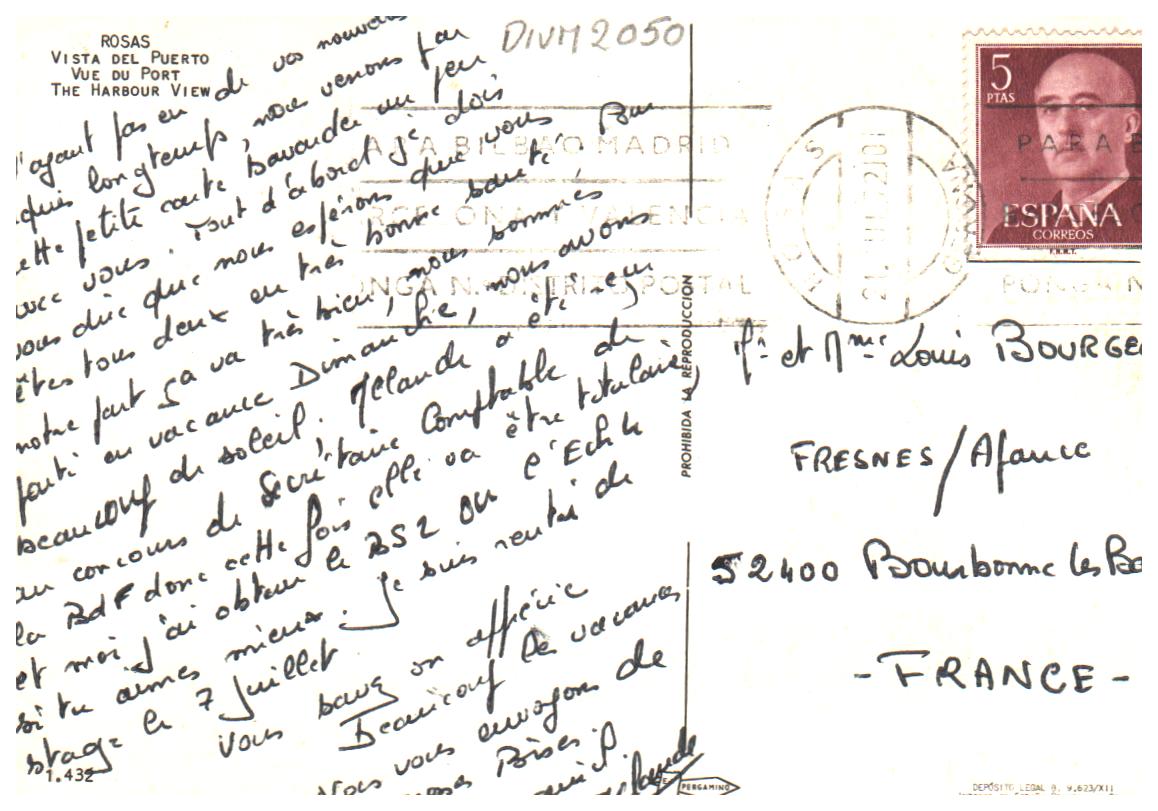 ROSAS
VISTA DEL PUERTO
VUE DU PORT
THE HARBOUR VIEW
DIVM2050
N'ayant pas eu de vos nouvelles
depuis longtemps, nous venons par
cette petite carte bavarder un peu
avec vous. Tout d'abord je dois
vous dire que nous espérons que vous
êtes tous deux en très bonne santé. Pour
notre part ça va très bien, nous sommes
parti en vacance Dimanche, nous avons
beaucoup de soleil. a été reçu
au concours de Secrétaire Comptable de
la BdF donc cette fois elle va être titulaire,
et moi j'ai obtenu le BS2 ou l'Ech le
si tu aimes mieux. Je suis rentré de
stage le 7 juillet.
Vous savez on apprécie
Beaucoup les vacances
Nous vous envoyons de
Bises.
1.432
PROHIBIDA LA REPRODUCCION
PERGAMINO
5
PTAS
ESPAÑA
CORREOS
F.N.M.T.
PARA BILBAO MADRID
BARCELONA Y VALENCIA
PONGA N.º DISTRITO POSTAL
PARA B
PONGA N
Mr et Mme Louis BOURGE
FRESNES/Apance
52400 Bourbonne les Ba
- FRANCE -
DEPÓSITO LEGAL B. 9.623/XII